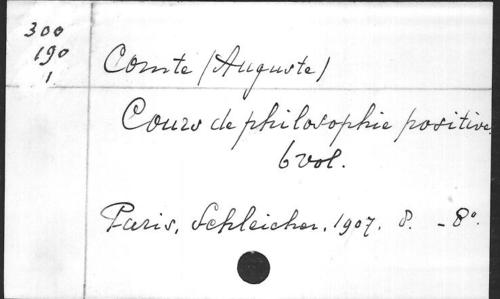 300
190
1
Comte (Auguste)
Cours de philosophie positive
6 vol.
Paris, Schleicher, 1907. 8. - 8°.